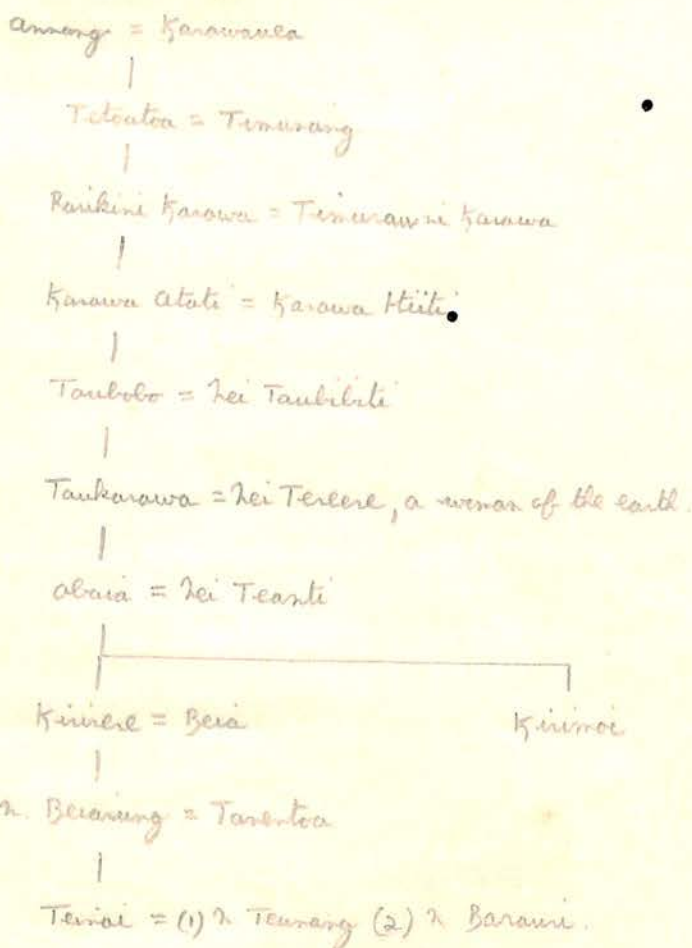 annang = Karawauea
Tetoatoa = Timurang
Rarikini Karawa = Timurawni Karawa
Karawa Atati = Karawa
Taubobo = Nei Taubibiti
Taukarawa = Nei Tereere, a woman of the earth.
abaia = Nei Teanti
Kirirere = Beia Kirimoi
n. = Tanentoa
Teinai = (1) n Teunang (2) n